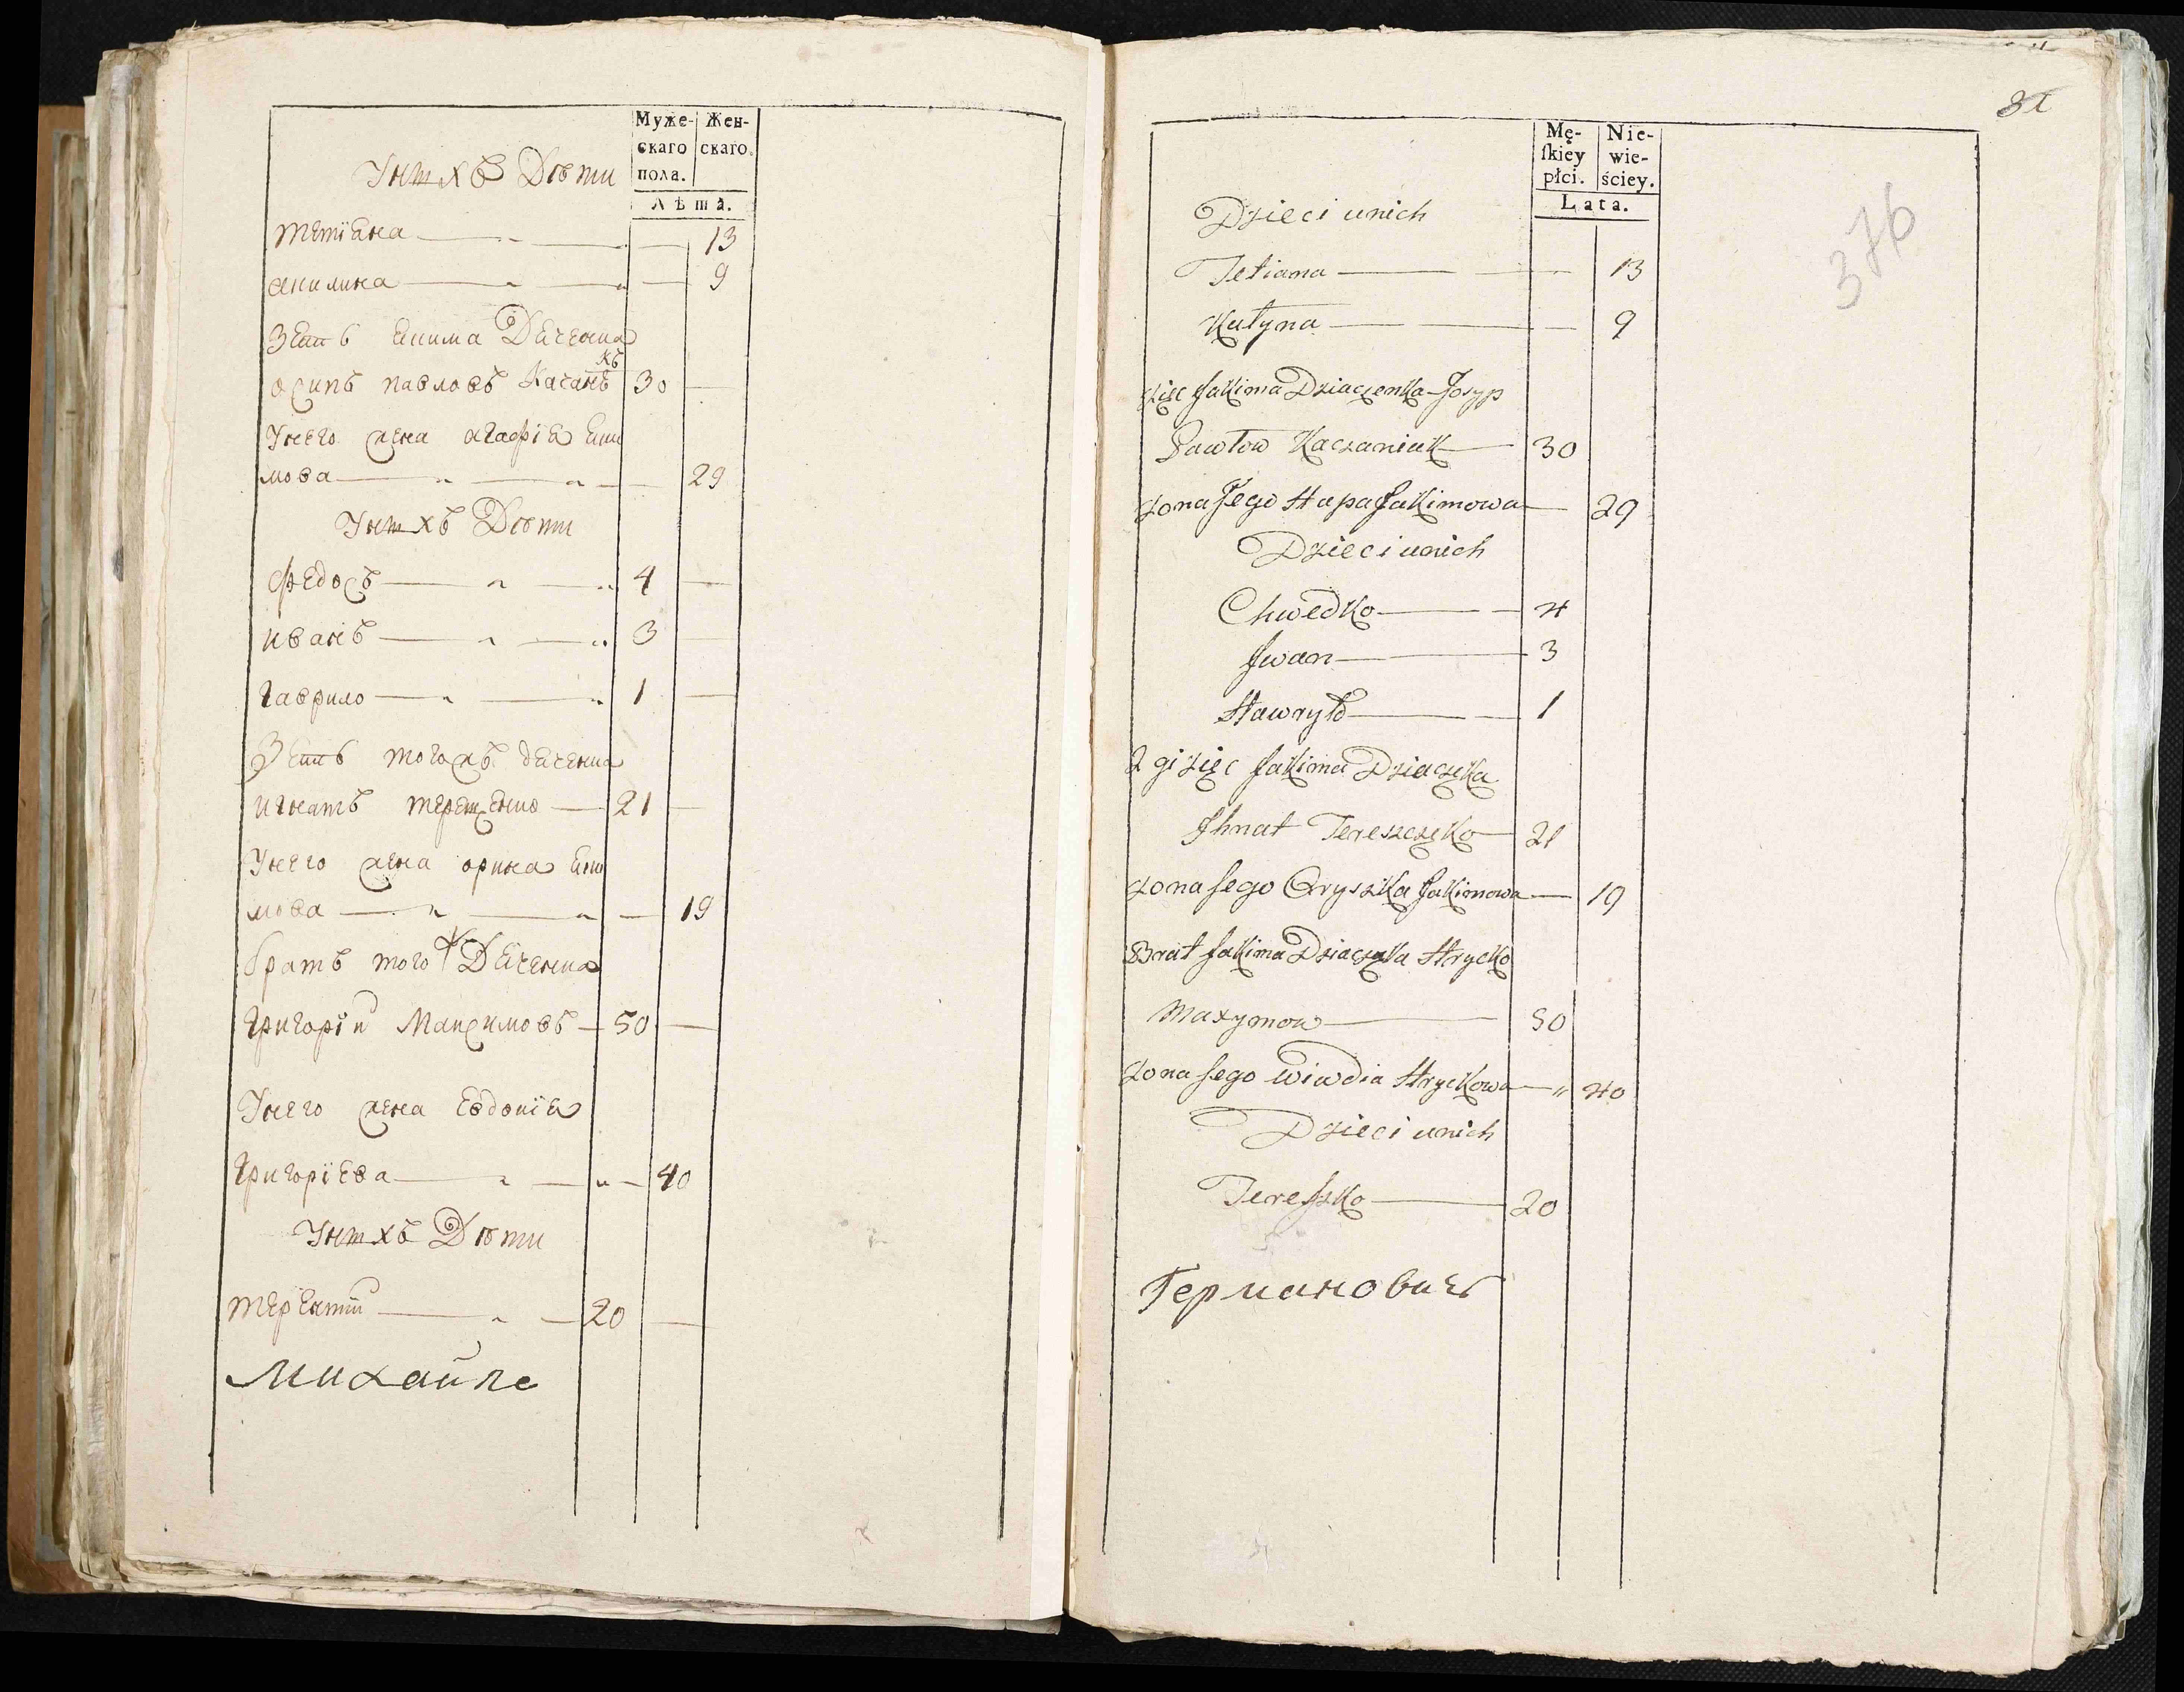 Муже-
скаго
пола.
Жен-
скаго.
Лѣта.
Унихъ Дѣти
тетiяна — 13
акилина — 9
Зять Екима Дяченка
осипъ павловъ Качанъ 30 —
къ
Унего жена агафiя Еки
мова — 29
Унихъ Дѣти
Федосъ — 4 —
иванъ — 3 —
гаврило — 1 —
Зять тогожъ дяченка
игнатъ терещенко — 21 —
Унего жена орина Еки
мова — 19
братъ того ж Дяченка
григорiй Максимовъ — 50 —
Унего жена Евдокiя
григорiева — 40
Унихъ Дѣти
терентiй — 20 —
Михайле
31
376
Mę-
ſkiey
płci.
Nie-
wie-
ściey.
Lata.
Dzieci unich
Tetiana — 13
Kulyna — 9
zięc Jakima Dziaczenka Josyp
Pawłow Kaczaniuk — 30
żona Jego Hapa Jakimowa — 29
Dzieci unich
Chwedko — 4
Jwan — 3
Hawryło — 1
2 gi zięc Jakima Dziaczka
Jhnat Tereszczko — 21
żona Jego Oryszka Jakimowa — 19
Brat Jakima Dziaczka Hrycko
Maxymow — 50
żona Jego Wiwdia Hryckowa — " 40
Dzieci unich
Tereſzko — 20
Германовичъ